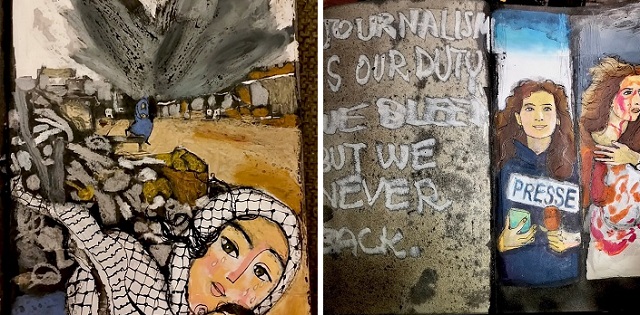 JOURNALISM
IS OUR DUTY
WE BLEED
BUT WE
NEVER
BACK.
PRESSE